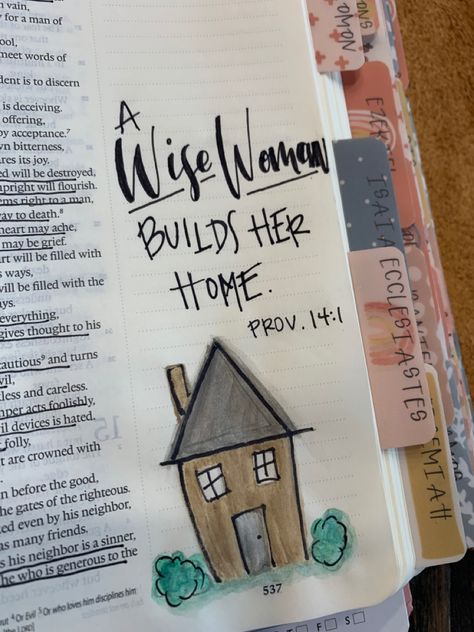 n vain,
y for a man of
ool,
meet words of
dent is to discern
is deceiving.
offering,
oy acceptance.⁷
wn bitterness,
res its joy.
d will be destroyed,
upright will flourish.
ems right to a man,
way to death.⁸
heart may ache,
may be grief.
art will be filled with
s ways,
will be filled with the
ys.
everything,
gives thought to his
cautious⁹ and turns
vil,
tless and careless.
mper acts foolishly,
il devices is hated.
folly,
t are crowned with
n before the good,
the gates of the righteous.
ked even by his neighbor,
as many friends.
his neighbor is a sinner,
he who is generous to the
ut ⁴ Or Evil ⁵ Or who loves him disciplines him
A
Wise Woman
BUILDS HER
HOME.
PROV. 14:1
537
OMON
EZEKIEL
ISAIA
ECCLESIASTES
EMIAH
F S